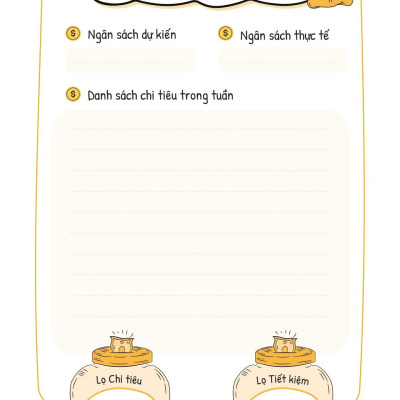 Ngân sách dự kiến
Ngân sách thực tế
Danh sách chi tiêu trong tuần
Lọ Chi tiêu
Lọ Tiết kiệm